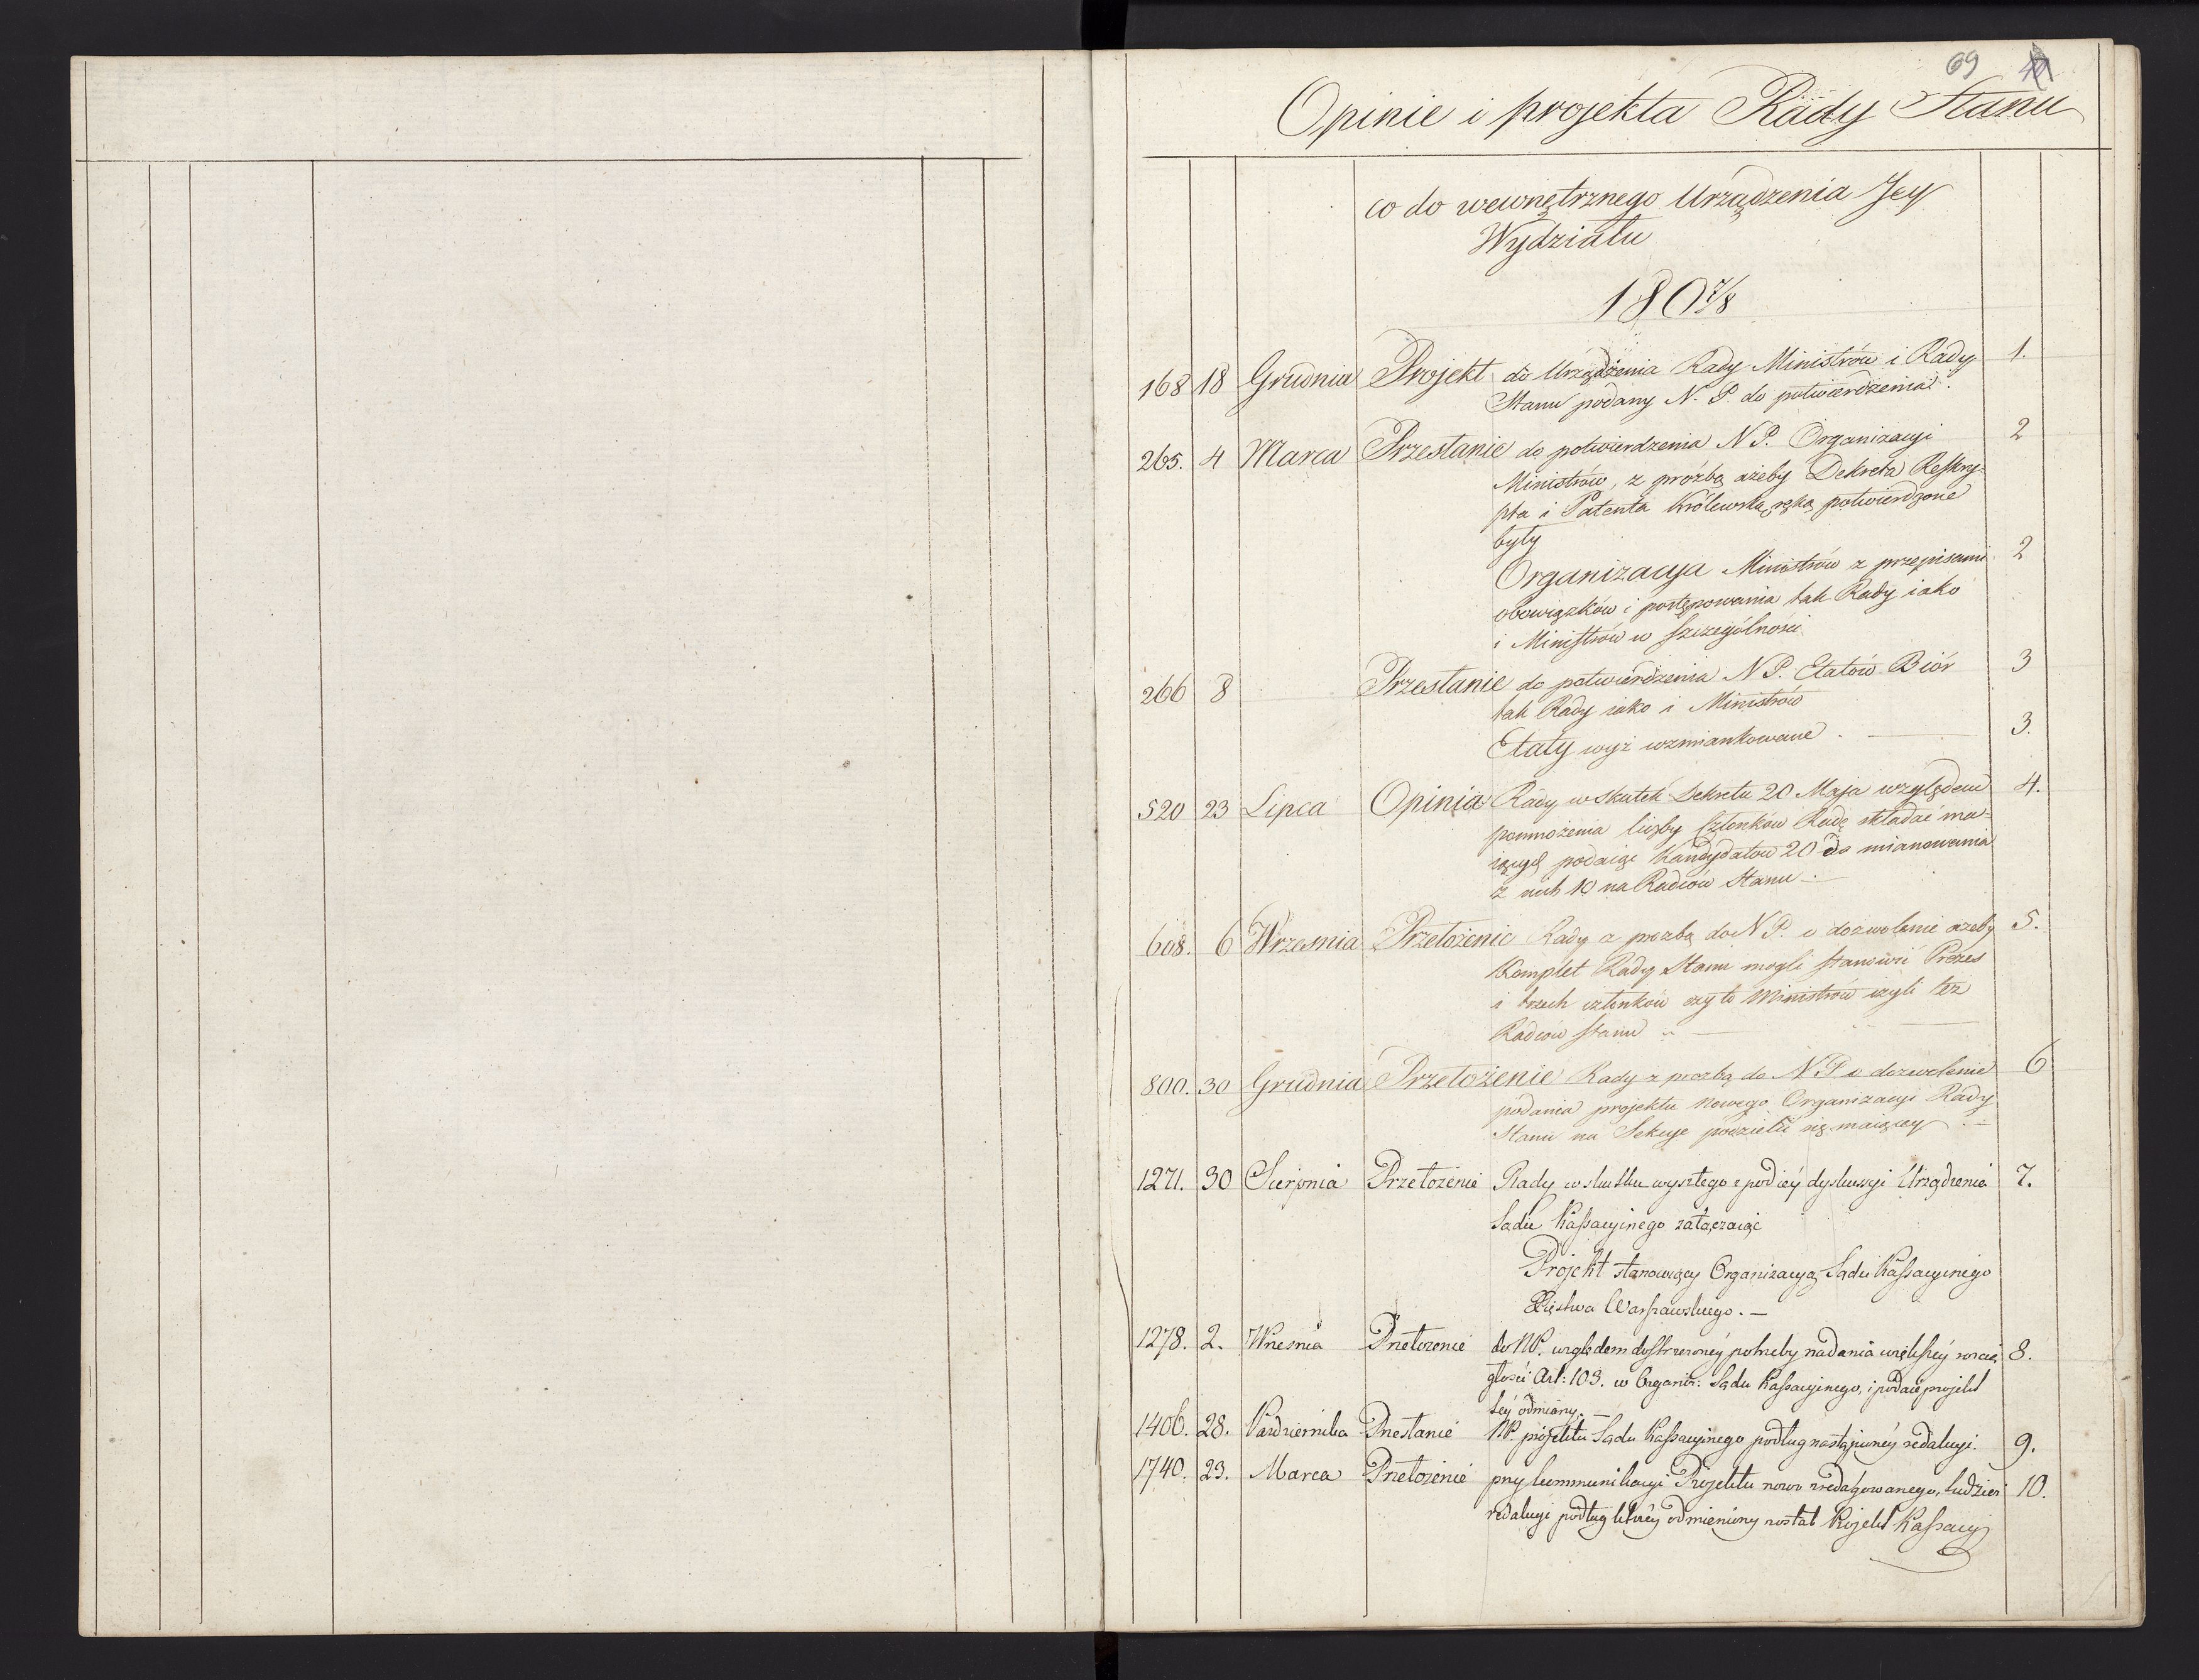 69
Opinie i projekta Rady Stanu
co do wewnętrznego Urządzenia Jey
Wydziału
180 7/8
168 18 Grudnia Projekt do Urządzenia Rady Ministrów i Rady 1.
Stanu podany N. P. do potwierdzenia.
265. 4 Marca Przesłanie do potwierdzenia N P. Organizacyi 2
Ministrów, z proźbą ażeby Dekreta Reskry-
pta i Patenta Królewską ręką potwierdzone
były
Organizacyja Ministrów z przepisami 2
obowiązków i postępowania tak Rady iako
i Ministrów w szczególności
266 8 — Przesłanie do potwierdzenia N P. Etatów Biór 3
tak Rady iako i Ministrów
Etaty wyż wzmiankowane. — 3.
520 23 Lipca Opinia Rady w skutek Dekretu 20 Maja względem 4.
pomnożenia liczby Członków Radę składać ma-
iących podaiąc Kandydatów 20 do mianowania
z nich 10 na Radców Stanu —
608. 6 Wrzesnia Przełożenie Rady z prozbą do N P. o dozwolenie ażeby 5.
Komplet Rady Stanu mogli stanowić Prezes
i trzech członków czy to Ministrów czyli też
Radców Stanu —
800. 30 Grudnia Przełożenie Rady z prozbą do N P o dozwolenie 6
podania projektu nowego Organizacyi Rady
Stanu na Sekcye podzielić się maiącey. —
1271. 30 Sierpnia Przełożenie Rady w skutku wyszłego z pod iéy dyskussyi Urządzenia 7.
Sądu Kassacyinego załączaiąc
Projekt stanowiący Organizacyą Sądu Kassacyinego
Xięstwa Warszawskiego. —
1278. 2. Wrzesnia Przełożenie do NP. względem dostrzeżonéy potrzeby nadania większéy rozcią 8.
głości Art: 103. w Organiz: Sądu Kassacyinego, i podaie projekt
téy odmiany. —
1406. 28. Pazdziernika Przesłanie NP. projektu Sądu Kassacyinego podług nastąpionéy redakcyi. 9.
1740. 23. Marca Przełożenie przy kommunikacyi Projektu nowo zredagowanego, tudzież 10.
redakcyi podług któréy odmieniony został Projekt Kassacyi